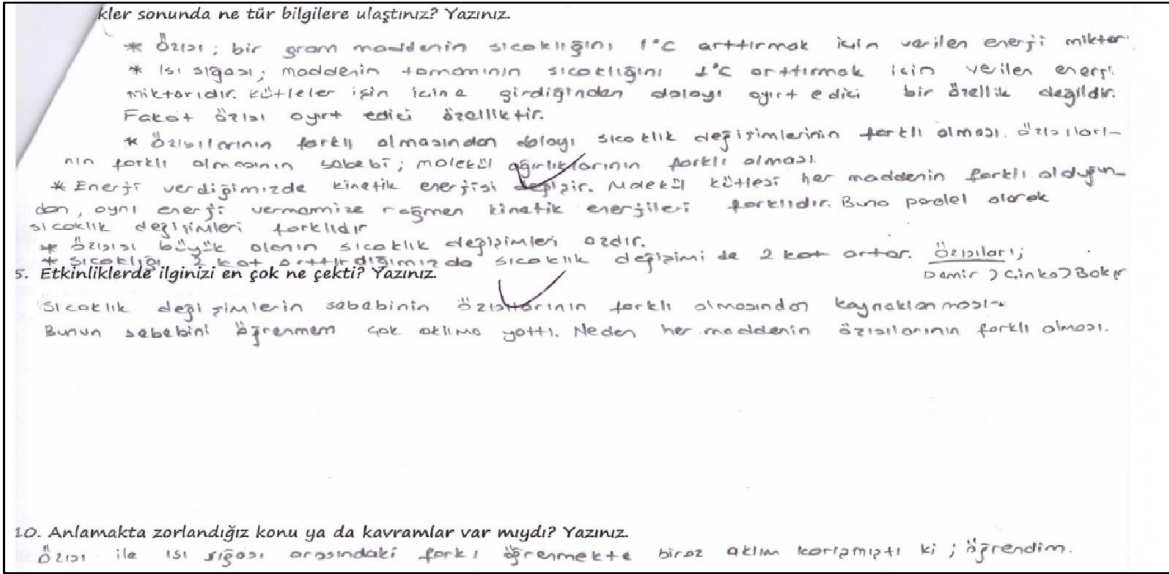 kler sonunda ne tür bilgilere ulaştınız? Yazınız.
* Özısı; bir gram maddenin sıcaklığını 1°C arttırmak için verilen enerji miktar
* Isı sığası; maddenin tamamının sıcaklığını 1°C arttırmak için verilen enerji
miktarıdır. Kütleler işin içine girdiğinden dolayı ayırt edici bir özellik değildir.
Fakat özısı ayırt edici özelliktir.
* Özısılarının farklı olmasından dolayı sıcaklık değişimlerinin farklı olması. Özısıları-
nın farklı olmasının sebebi; molekül ağırlıklarının farklı olması.
* Enerji verdiğimizde kinetik enerjisi değişir. Molekül kütlesi her maddenin farklı olduğun-
dan, aynı enerji vermemize rağmen kinetik enerjileri farklıdır. Buna paralel olarak
sıcaklık değişimleri farklıdır
* Özısısı büyük olanın sıcaklık değişimleri azdır.
* Sıcaklığı 2 kat arttırdığımızda sıcaklık değişimi de 2 kat artar. Özısıları;
Demir > Çinko > Bakır
5. Etkinliklerde ilginizi en çok ne çekti? Yazınız.
Sıcaklık değişimlerin sebebinin özısılarının farklı olmasından kaynaklanması
Bunun sebebini öğrenmem çok aklıma yattı. Neden her maddenin özısılarının farklı olması.
10. Anlamakta zorlandığız konu ya da kavramlar var mıydı? Yazınız.
Özısı ile ısı sığası arasındaki farkı öğrenmekte biraz aklım karışmıştı ki; öğrendim.